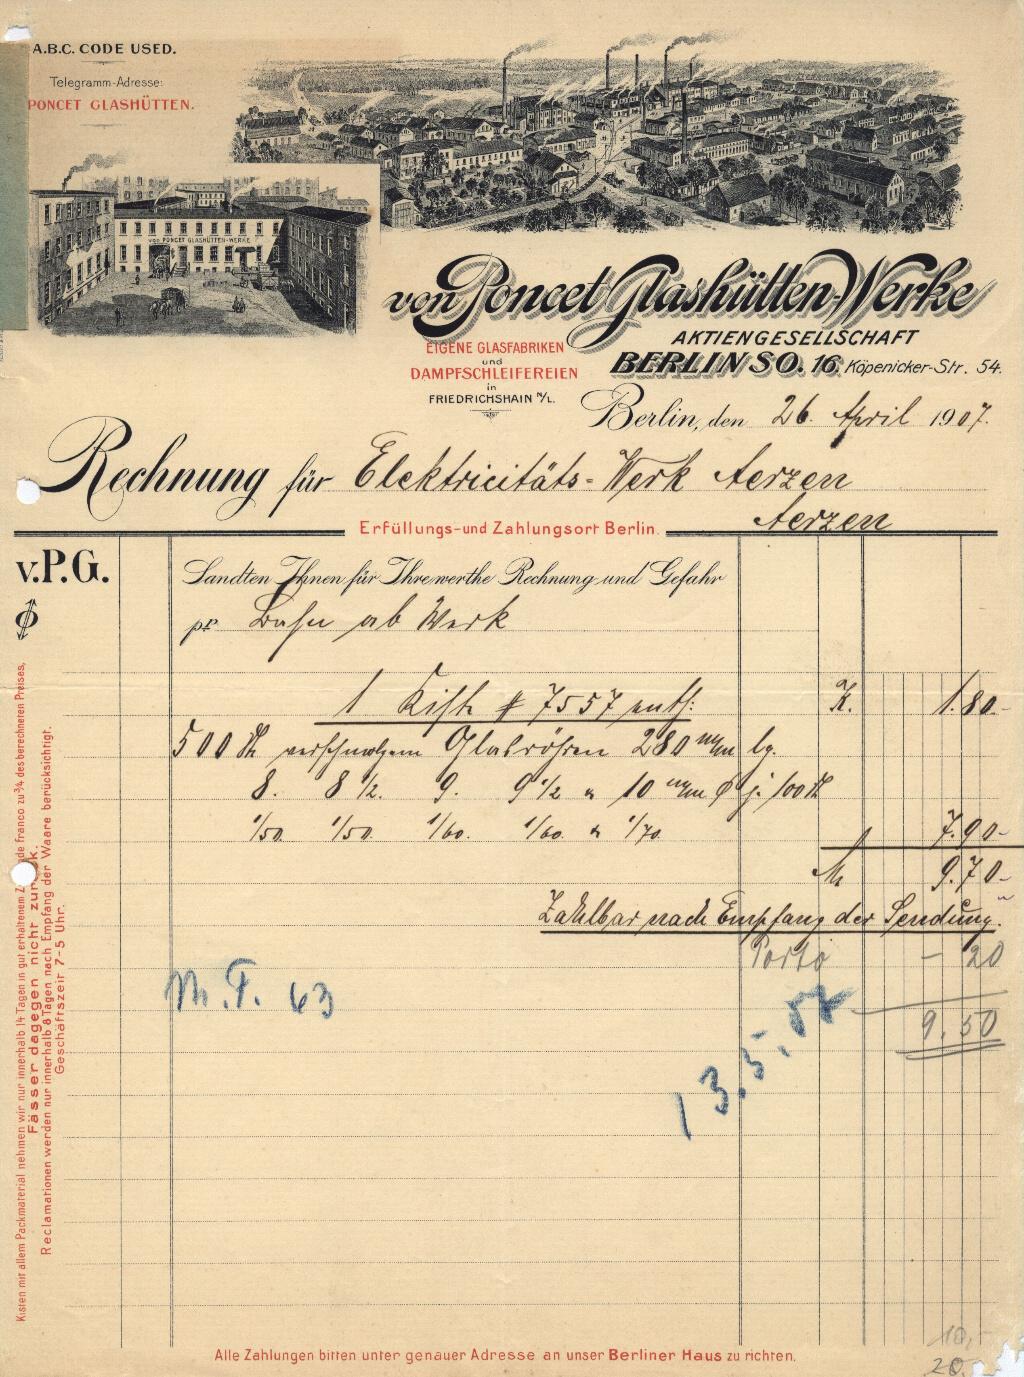 A.B.C. CODE USED.
Telegramm-Adresse:
PONCET GLASHÜTTEN.
von PONCET GLASHÜTTEN-WERKE
von Poncet Glashütten-Werke
AKTIENGESELLSCHAFT
BERLIN SO. 16, Köpenicker-Str. 54.
EIGENE GLASFABRIKEN
und
DAMPFSCHLEIFEREIEN
in
FRIEDRICHSHAIN N/L.
Berlin, den 26. April 1907.
Rechnung für Elektricitäts-Werk Aerzen
Aerzen
Erfüllungs- und Zahlungsort Berlin.
v.P.G.
Sandten Ihnen für Ihre werthe Rechnung und Gefahr
pr Bahn ab Werk
1 Kiste # 7557 enth: K. 1.80-
500 St. verschmolzene Glasröhren 280 m/m lg.
8. 8 1/2. 9. 9 1/2 " 10 m/m Ø je 100 St
1/50. 1/50. 1/60. 1/60. " 1/70. 7.90-
M 9.70-
Zahlbar nach Empfang der Sendung.
Porto - 20
9.50
M.F. 63
13.5.07
10,-
20.
Kisten mit allem Packmaterial nehmen wir nur innerhalb 14 Tagen in gut erhaltenem Z de franco zu 3/4 des berechneten Preises,
Fässer dagegen nicht zurück.
Reclamationen werden nur innerhalb 8 Tagen nach Empfang der Waare berücksichtigt.
Geschäftszeit 7-5 Uhr.
Alle Zahlungen bitten unter genauer Adresse an unser Berliner Haus zu richten.